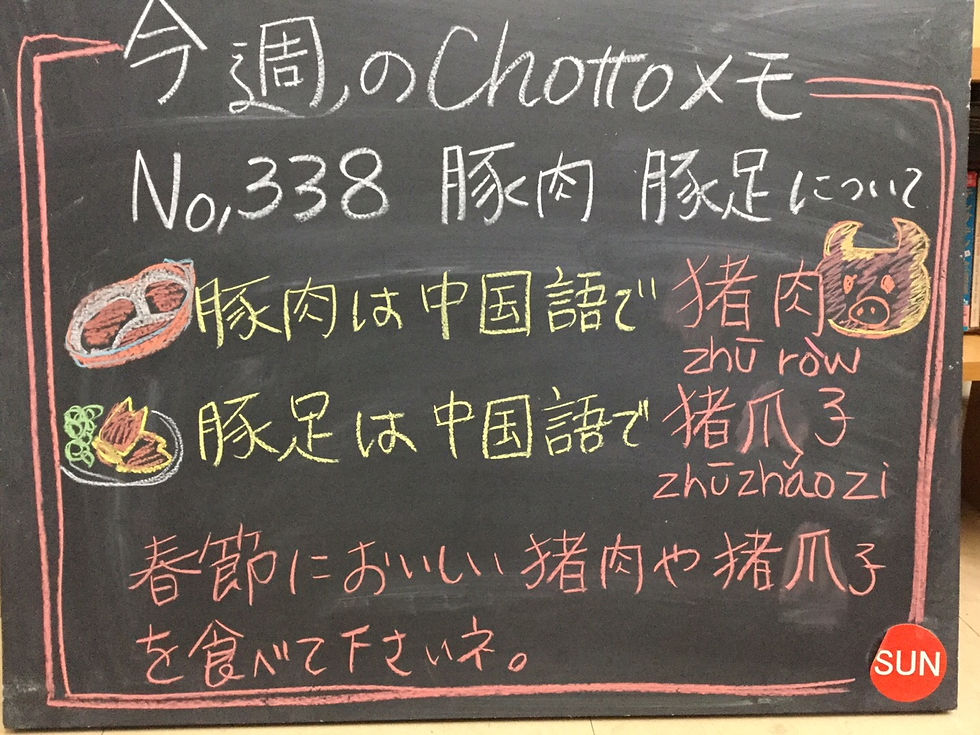 今週のChottoメモ
No,338 豚肉 豚足について
豚肉は中国語で 猪肉
zhū ròw
豚足は中国語で 猪爪子
zhūzhǎo zi
春節においしい猪肉や猪爪子
を食べて下さいネ。
SUN